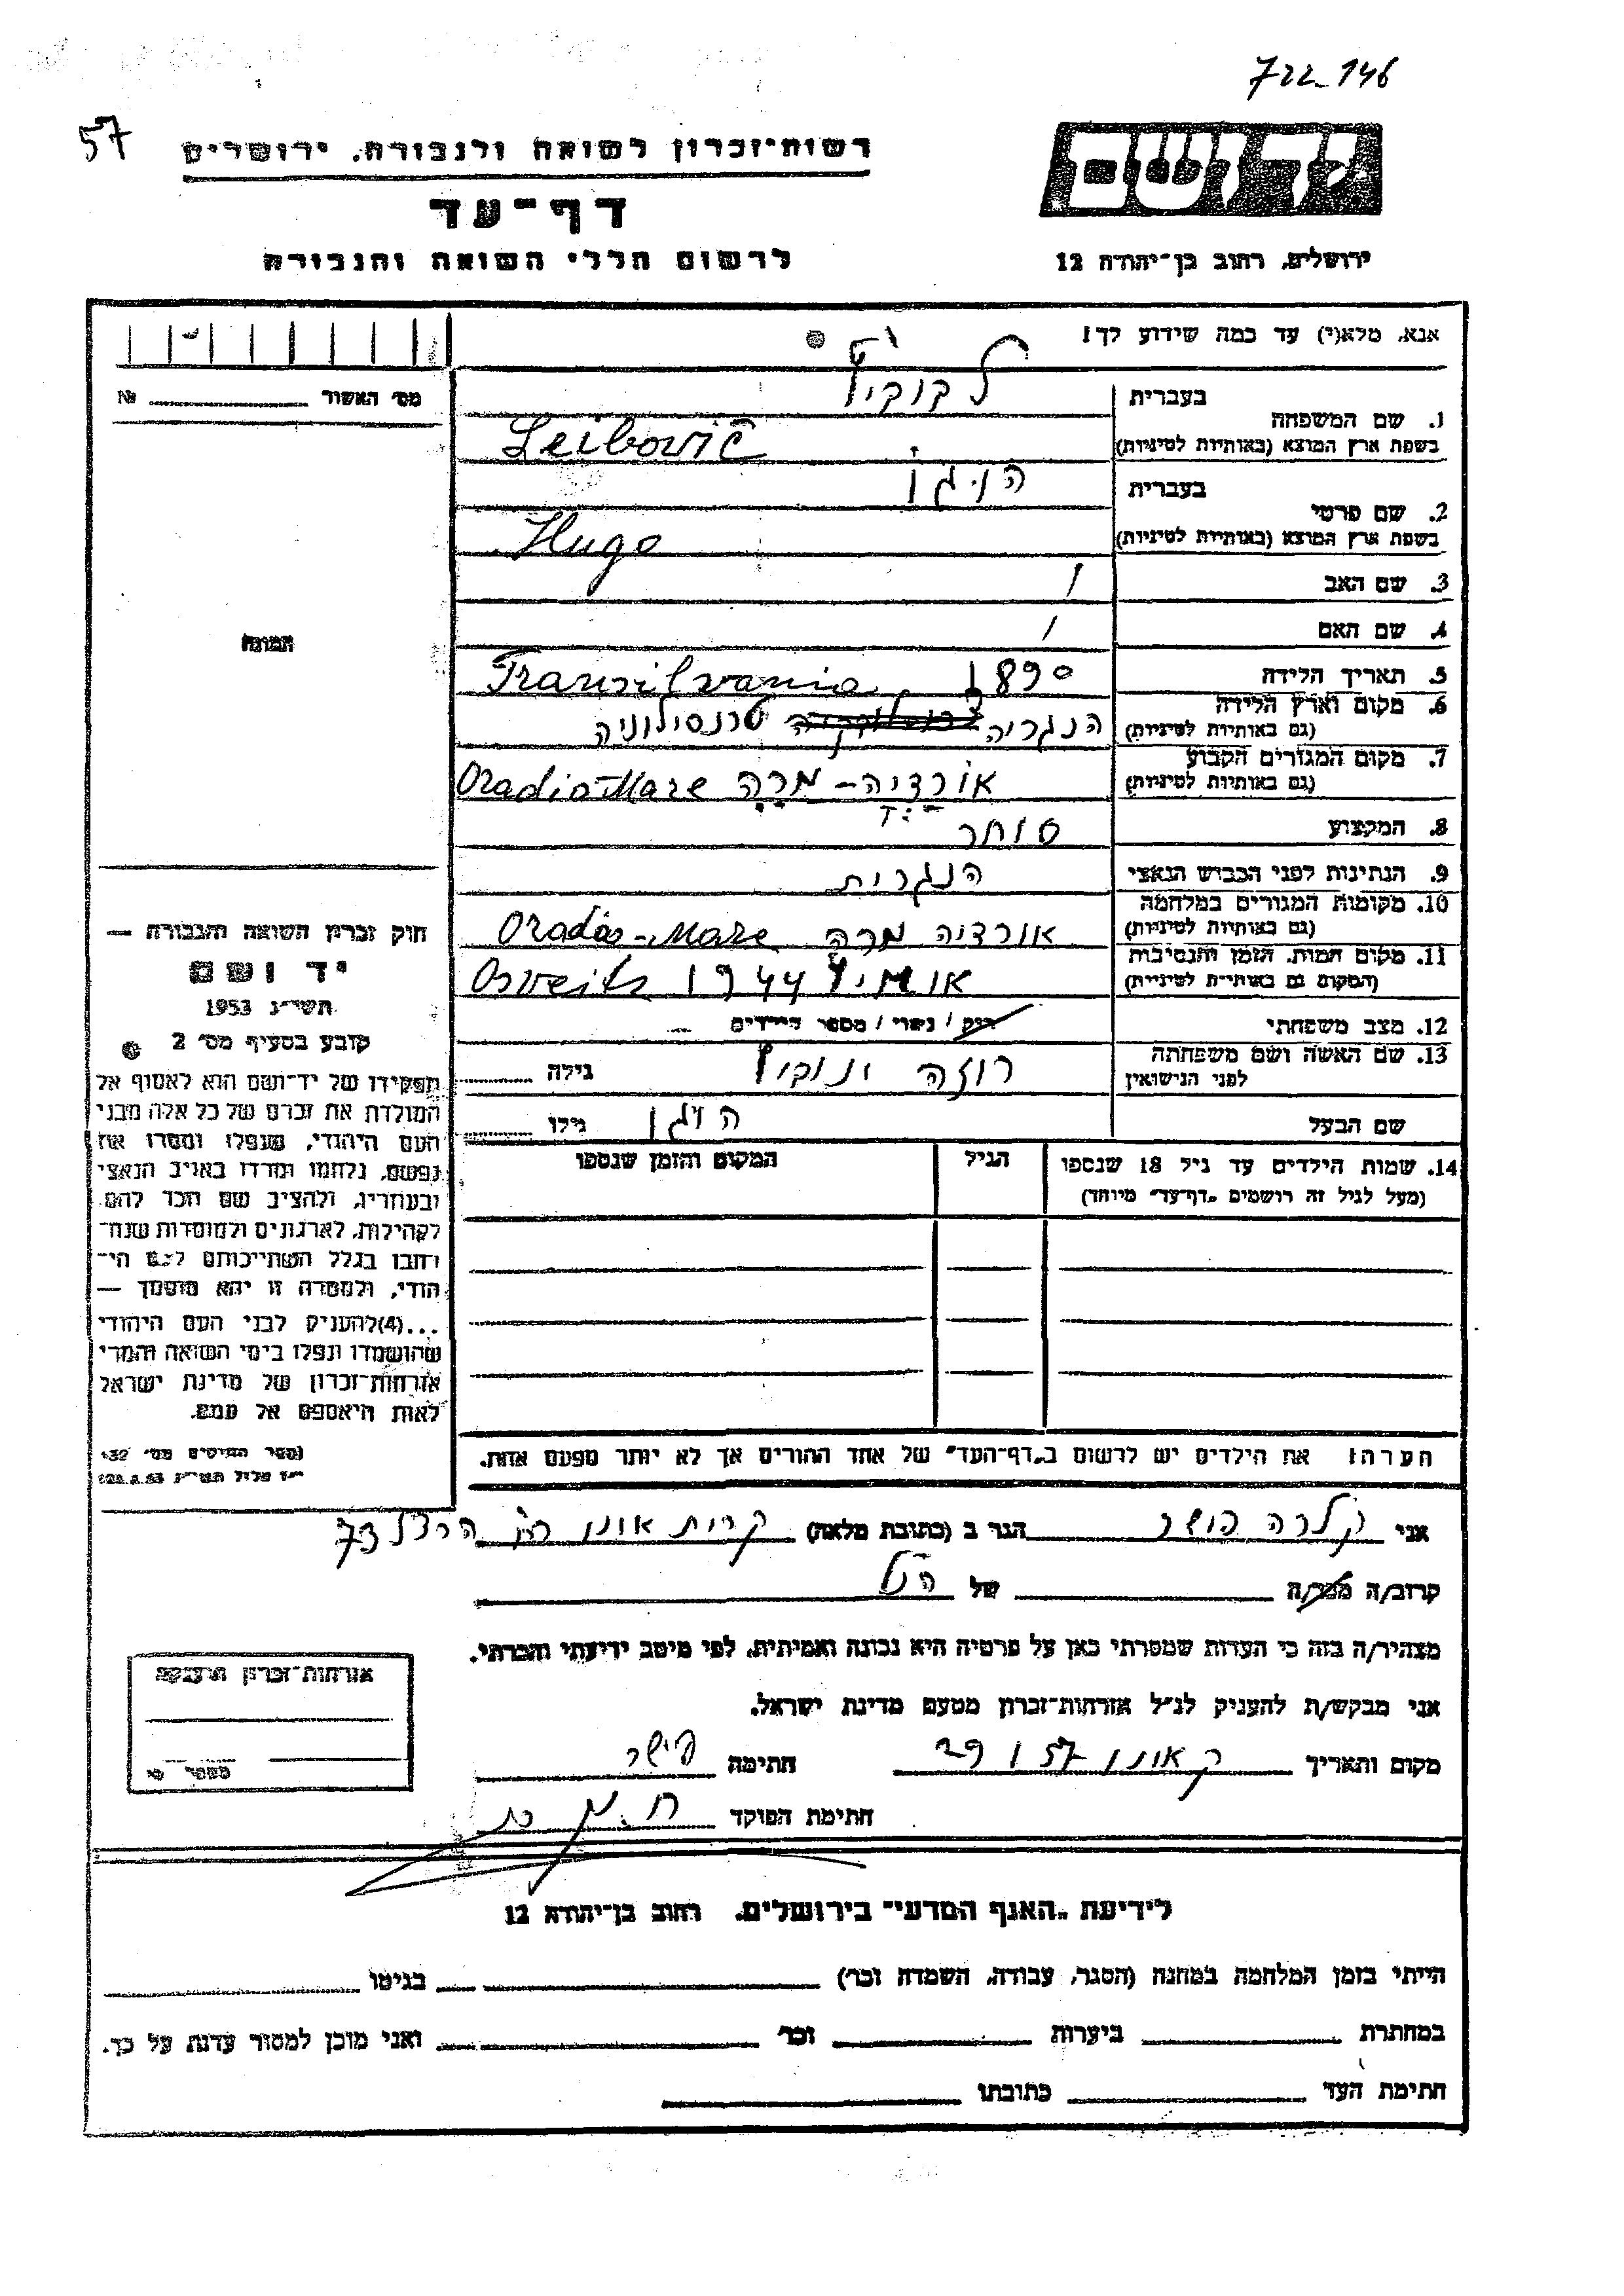 722-146
57
רשות־זכרון לשואה ולגבורה, ירושלים
יד ושם
דף־עד
לרשום חללי השואה והגבורה
ירושלים, רחוב בן־יהודה 12
אנא, מלא(י) עד כמה שידוע לך!
מס׳ האשור № 
1. שם המשפחה
בעברית
בשפת ארץ המוצא (באותיות לטיניות) Leibovič
2. שם פרטי
בעברית הוגו
בשפת ארץ המוצא (באותיות לטיניות) Hugo
3. שם האב /
4. שם האם /
התמונה
5. תאריך הלידה 1890 Transilvania
6. מקום וארץ הלידה הנגריה טרנסילוניה
(גם באותיות לטיניות)
7. מקום המגורים הקבוע אורדיה־מרה Oradia-Mare
(גם באותיות לטיניות)
8. המקצוע סוחר
9. הנתינות לפני הכבוש הנאצי הנגרית
10. מקומות המגורים במלחמה אורדיה מרה Oradia-Mare
(גם באותיות לטיניות)
11. מקום המות, הזמן והנסיבות 1944
(המקום גם באותיות לטיניות)
12. מצב משפחתי רוק / נשוי / מספר הילדים
13. שם האשה ושם משפחתה רוזה גילה
לפני הנישואין
שם הבעל הוגו גילו
14. שמות הילדים עד גיל 18 שנספו הגיל המקום והזמן שנספו
(מעל לגיל זה רושמים „דף־עד״ מיוחד)
הערה: את הילדים יש לרשום ב„דף־העד״ של אחד ההורים אך לא יותר מפעם אחת.
חוק זכרון השואה והגבורה —
יד ושם
תשי״ג 1953
קובע בסעיף מס׳ 2
תפקידו של יד־ושם הוא לאסוף אל
המולדת את זכרם של כל אלה מבני
העם היהודי, שנפלו ומסרו את
נפשם, נלחמו ומרדו באויב הנאצי
ובעוזריו, ולהציב שם וזכר להם,
לקהילות, לארגונים ולמוסדות שנח־
רבו בגלל השתייכותם לעם הי־
הודי, ולמטרה זו יהא מוסמך —
...(4) להעניק לבני העם היהודי
שהושמדו ונפלו בימי השואה והמרי
אזרחות־זכרון של מדינת ישראל
לאות היאספם אל עמם.
(ספר החוקים מס׳ 132
אני קלרה פישר הגר ב (כתובת מלאה) קרית אונו רח׳ הרצל 73
קרוב/ה מכר/ה של הנ״ל
מצהיר/ה בזה כי העדות שמסרתי כאן על פרטיה היא נכונה ואמיתית, לפי מיטב ידיעתי והכרתי.
אני מבקש/ת להעניק לנ״ל אזרחות־זכרון מטעם מדינת ישראל.
מקום ותאריך ק אונו 29 1 57 חתימה פישר
חתימת הפוקד
אזרחות־זכרון הוענקה
מספר
לידיעת „האגף המדעי״ בירושלים, רחוב בן־יהודה 12
הייתי בזמן המלחמה במחנה (הסגר, עבודה, השמדה וכו׳) בגיטו
במחתרת ביערות וכו׳ ואני מוכן למסור עדות על כך.
חתימת העד כתובתו